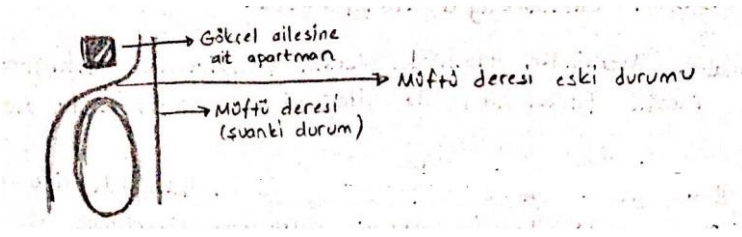 Gökçel ailesine
ait apartman
Müftü deresi eski durumu
Müftü deresi
(şuanki durum)